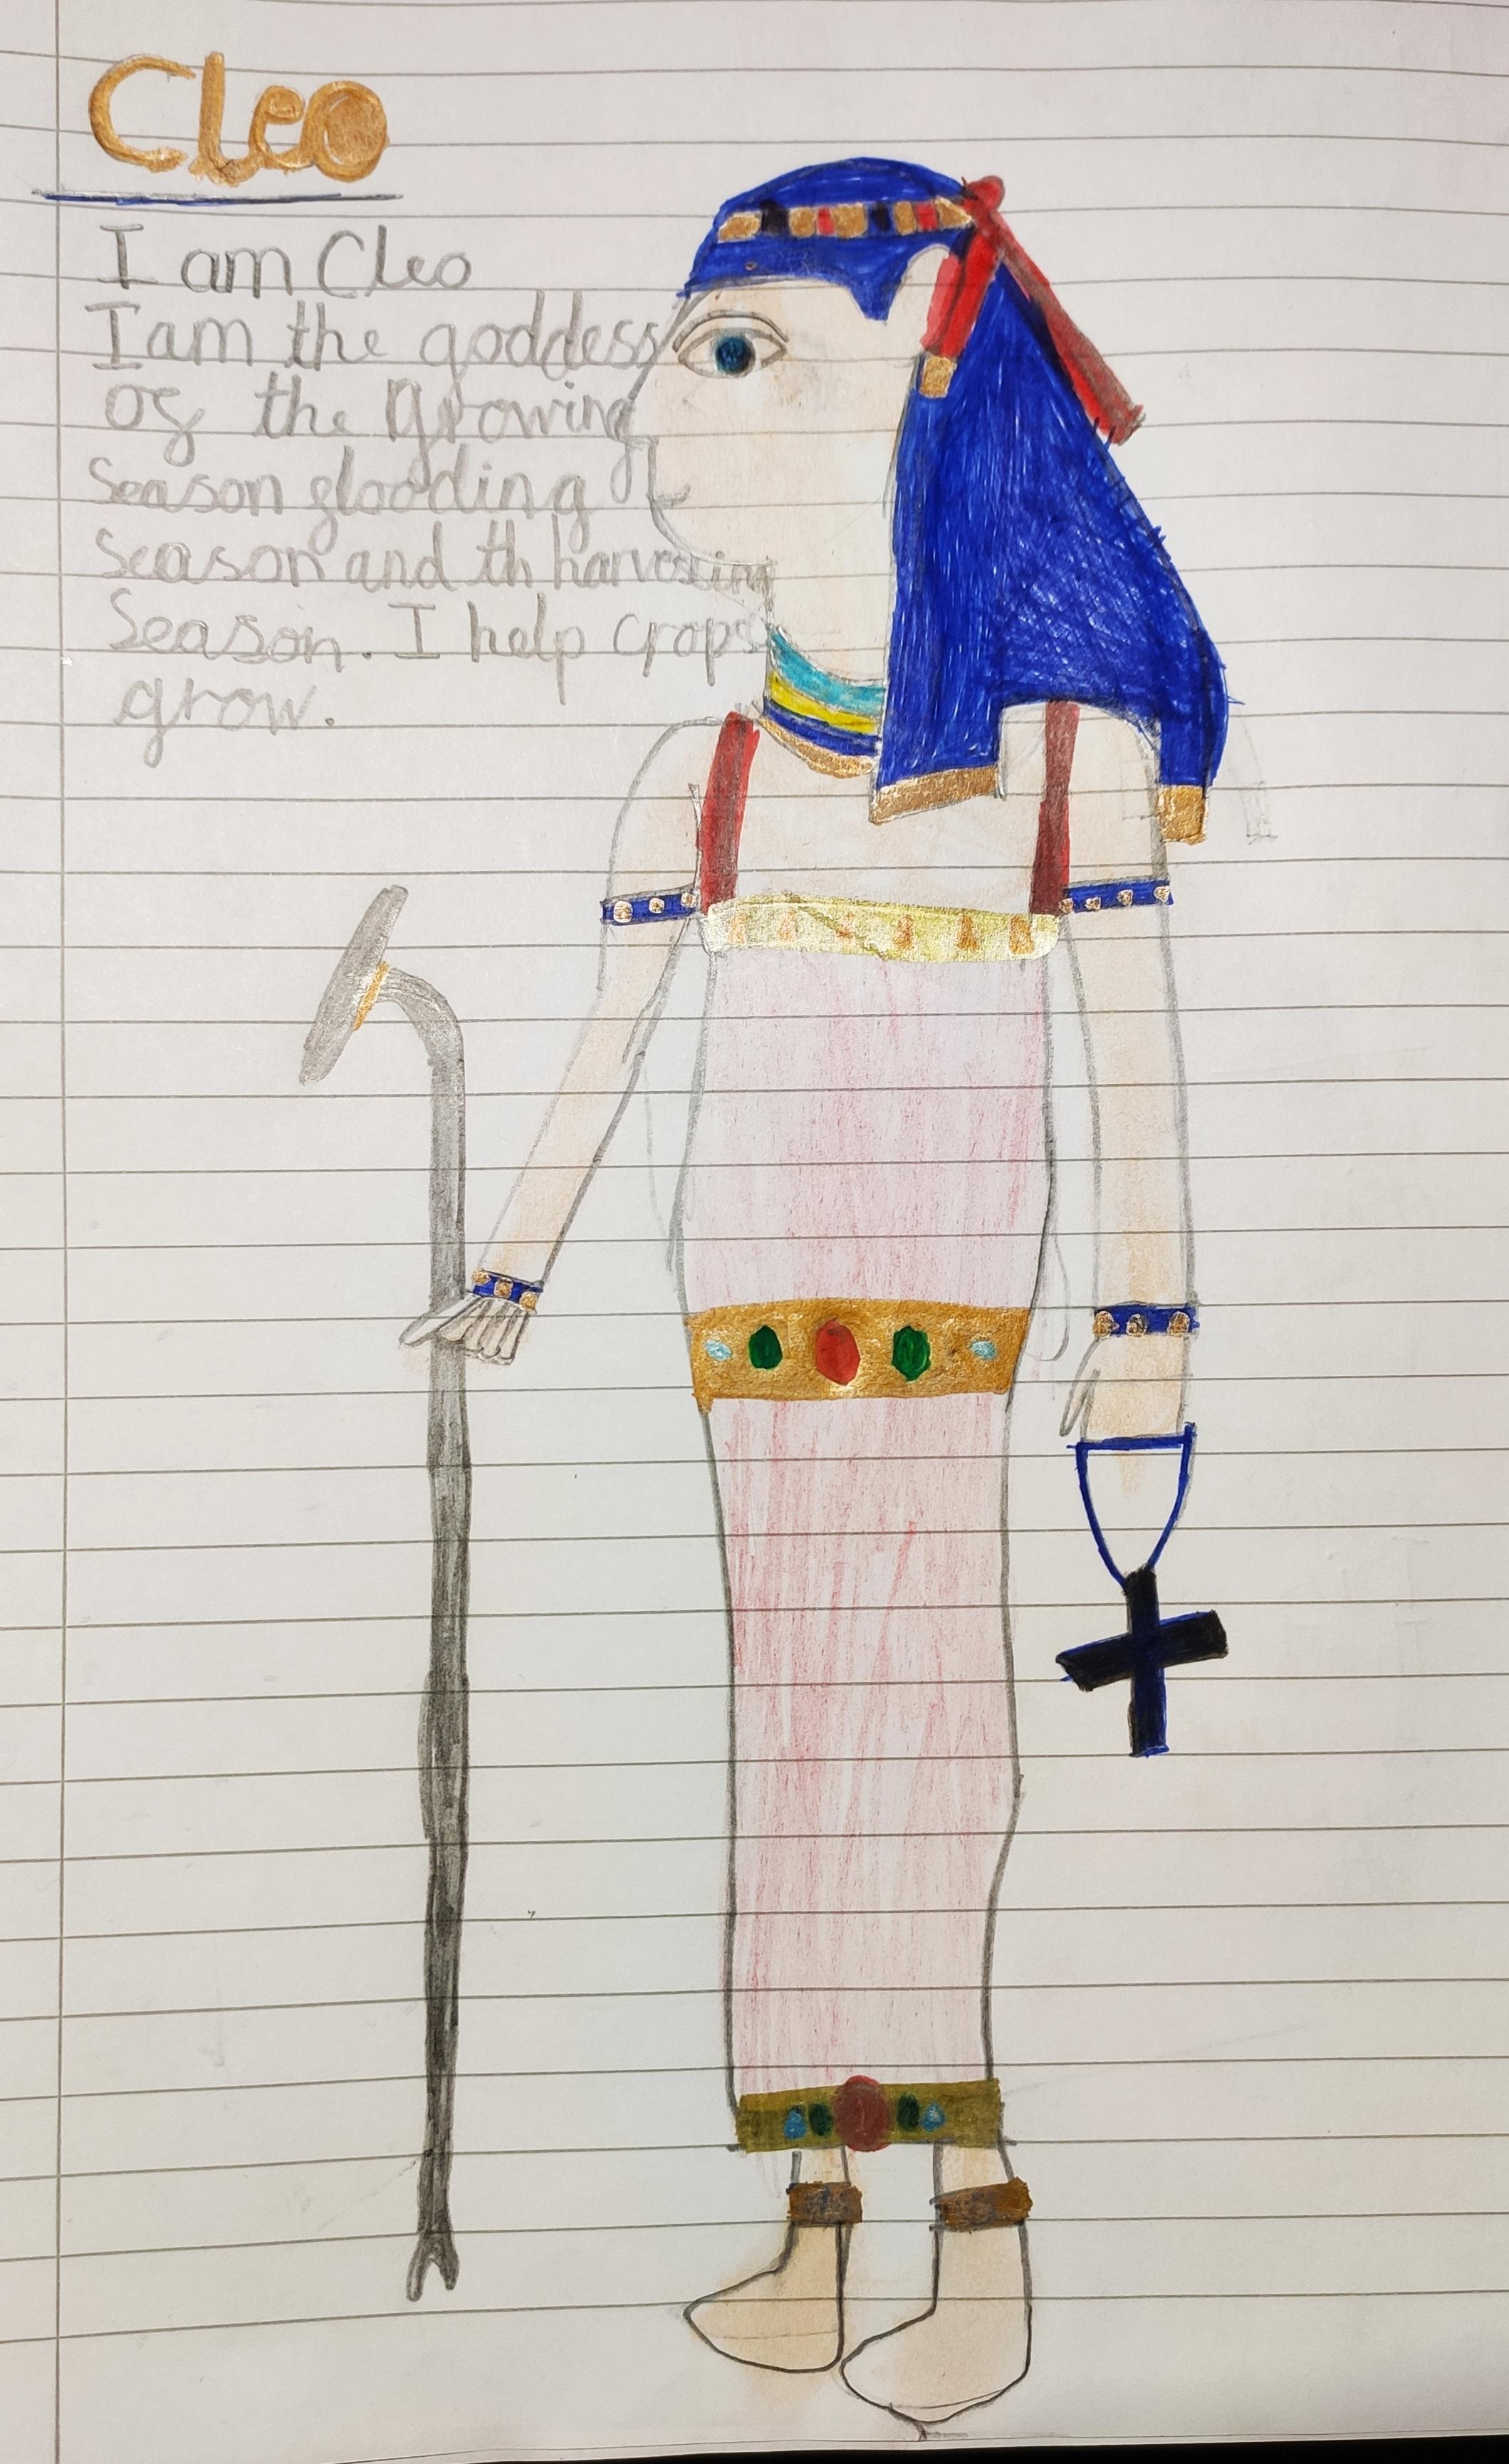 Cleo
I am Cleo
I am the goddess
of the growing
Season flooding
Season and th harvesting
Season. I help crops
grow.